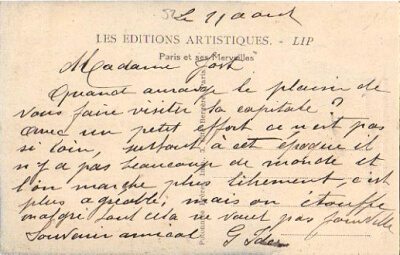 Le 11 aout
LES EDITIONS ARTISTIQUES. - LIP
Paris et ses Merveilles
Madame
Quand aurai-je le plaisir de
vous faire visiter la capitale ?
avec un petit effort ce n'est pas
si loin, surtout à cet époque il
n'y a pas beaucoup de monde et
l'on marche plus librement, c'est
plus agréable, mais on étouffe
malgré tout cela ne vaut pas Joinville
Souvenir amical G